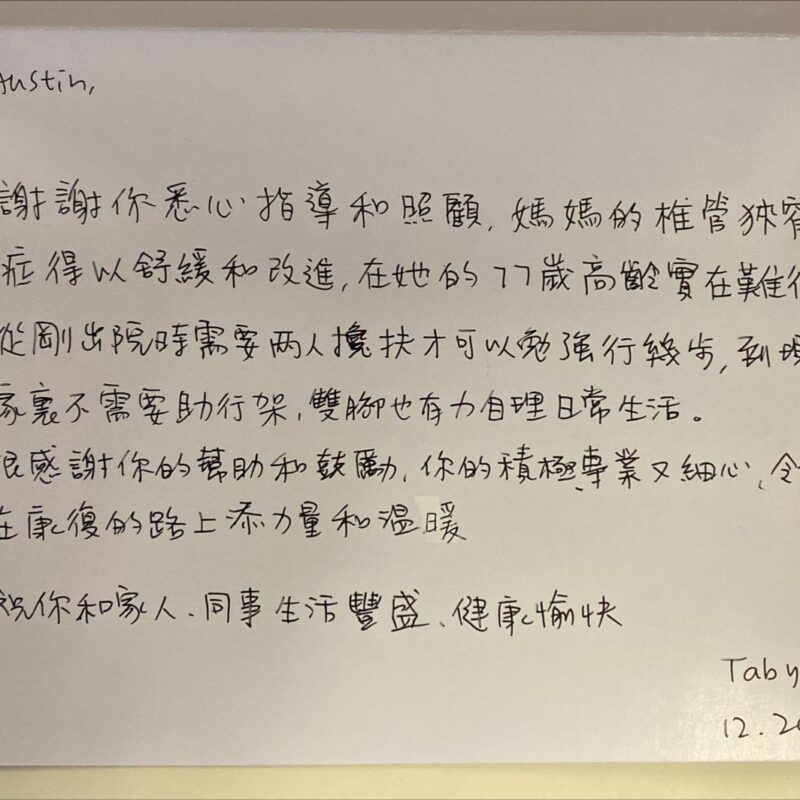 Austin,
謝謝你悉心指導和照顧,媽媽的椎管狹窄
症得以舒緩和改進,在她的77歲高齡實在難得
從剛出院時需要兩人攙扶才可以勉強行幾步,到現
家裏不需要助行架,雙腳也有力自理日常生活。
很感謝你的幫助和鼓勵,你的積極、專業又細心,令
在康復的路上添力量和溫暖
祝你和家人、同事生活豐盛、健康愉快
Taby
12.20